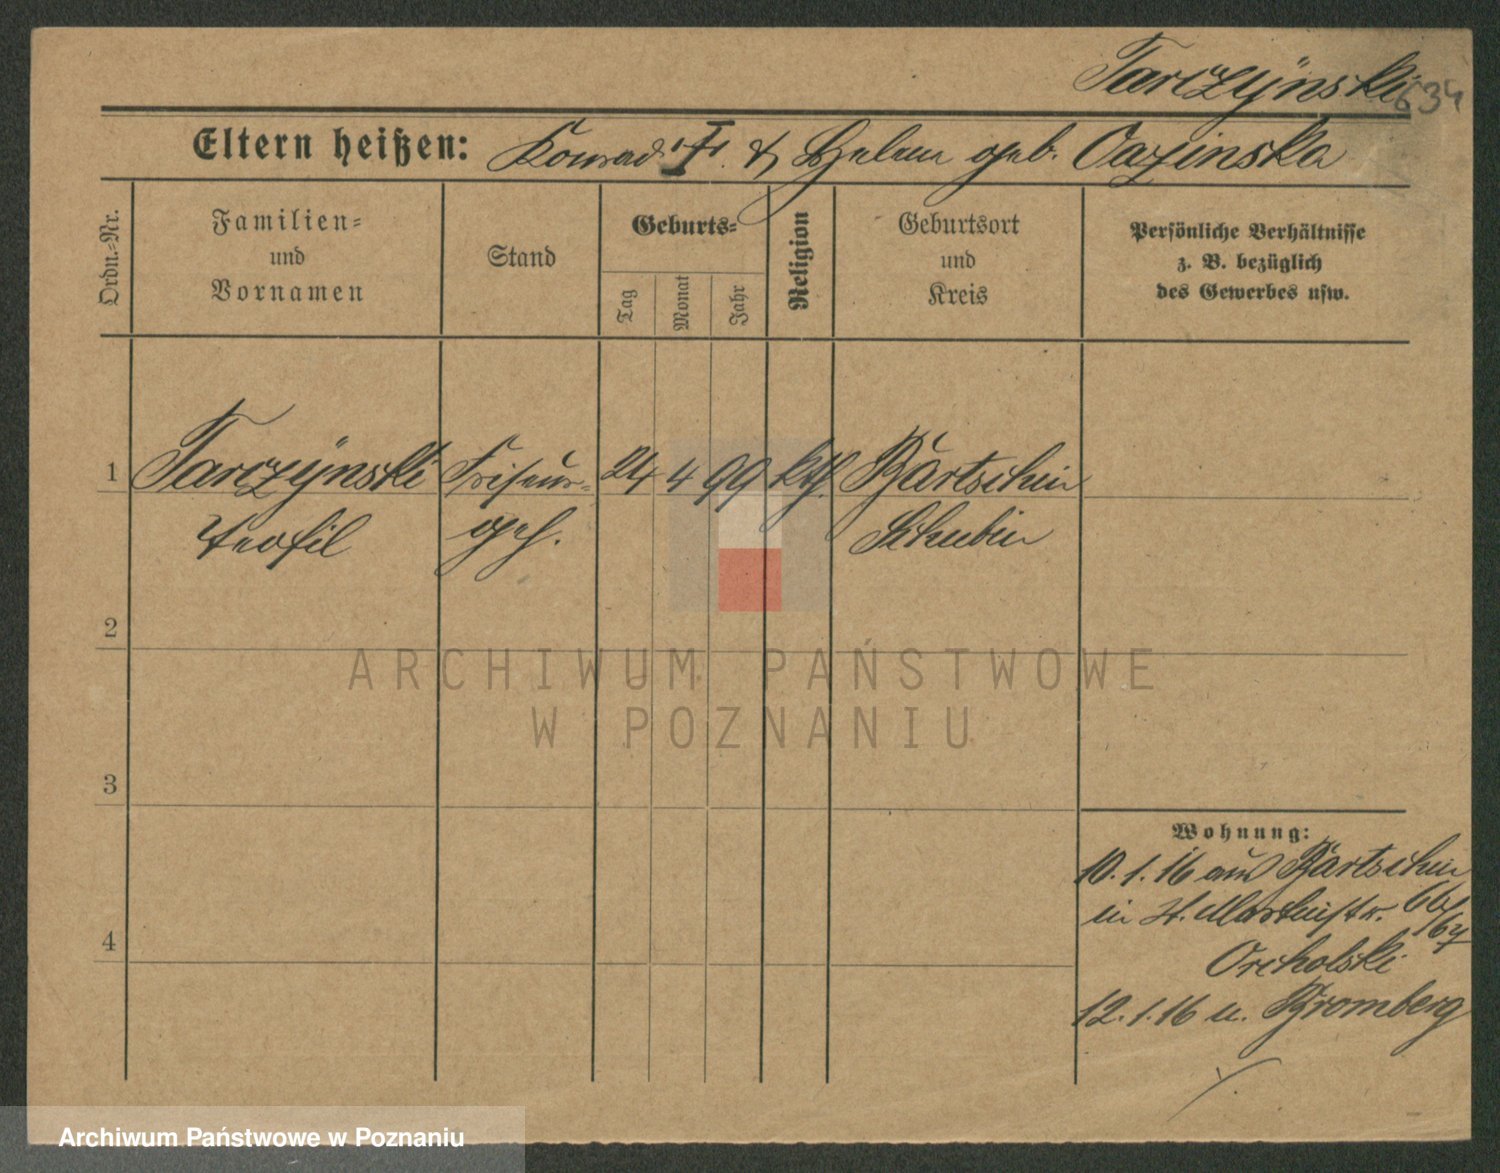 Tarczÿnski
634
Eltern heißen: Konrad T. & Helene geb.
Ordn.-Nr.
Familien-
und
Vornamen
Stand
Geburts-
Tag
Monat
Jahr
Religion
Geburtsort
und
Kreis
Persönliche Verhältnisse
z. B. bezüglich
des Gewerbes usw.
1 Tarczÿnski Friseur- 24 4 99 kth. Bartschin
Teofil geh. Schubin
2
3
4
Wohnung:
10.1.16 aus Bartschin
in St. Martinstr. 66/67
Orcholski
12.1.16 n. Bromberg
ARCHIWUM PAŃSTWOWE
W POZNANIU
Archiwum Państwowe w Poznaniu